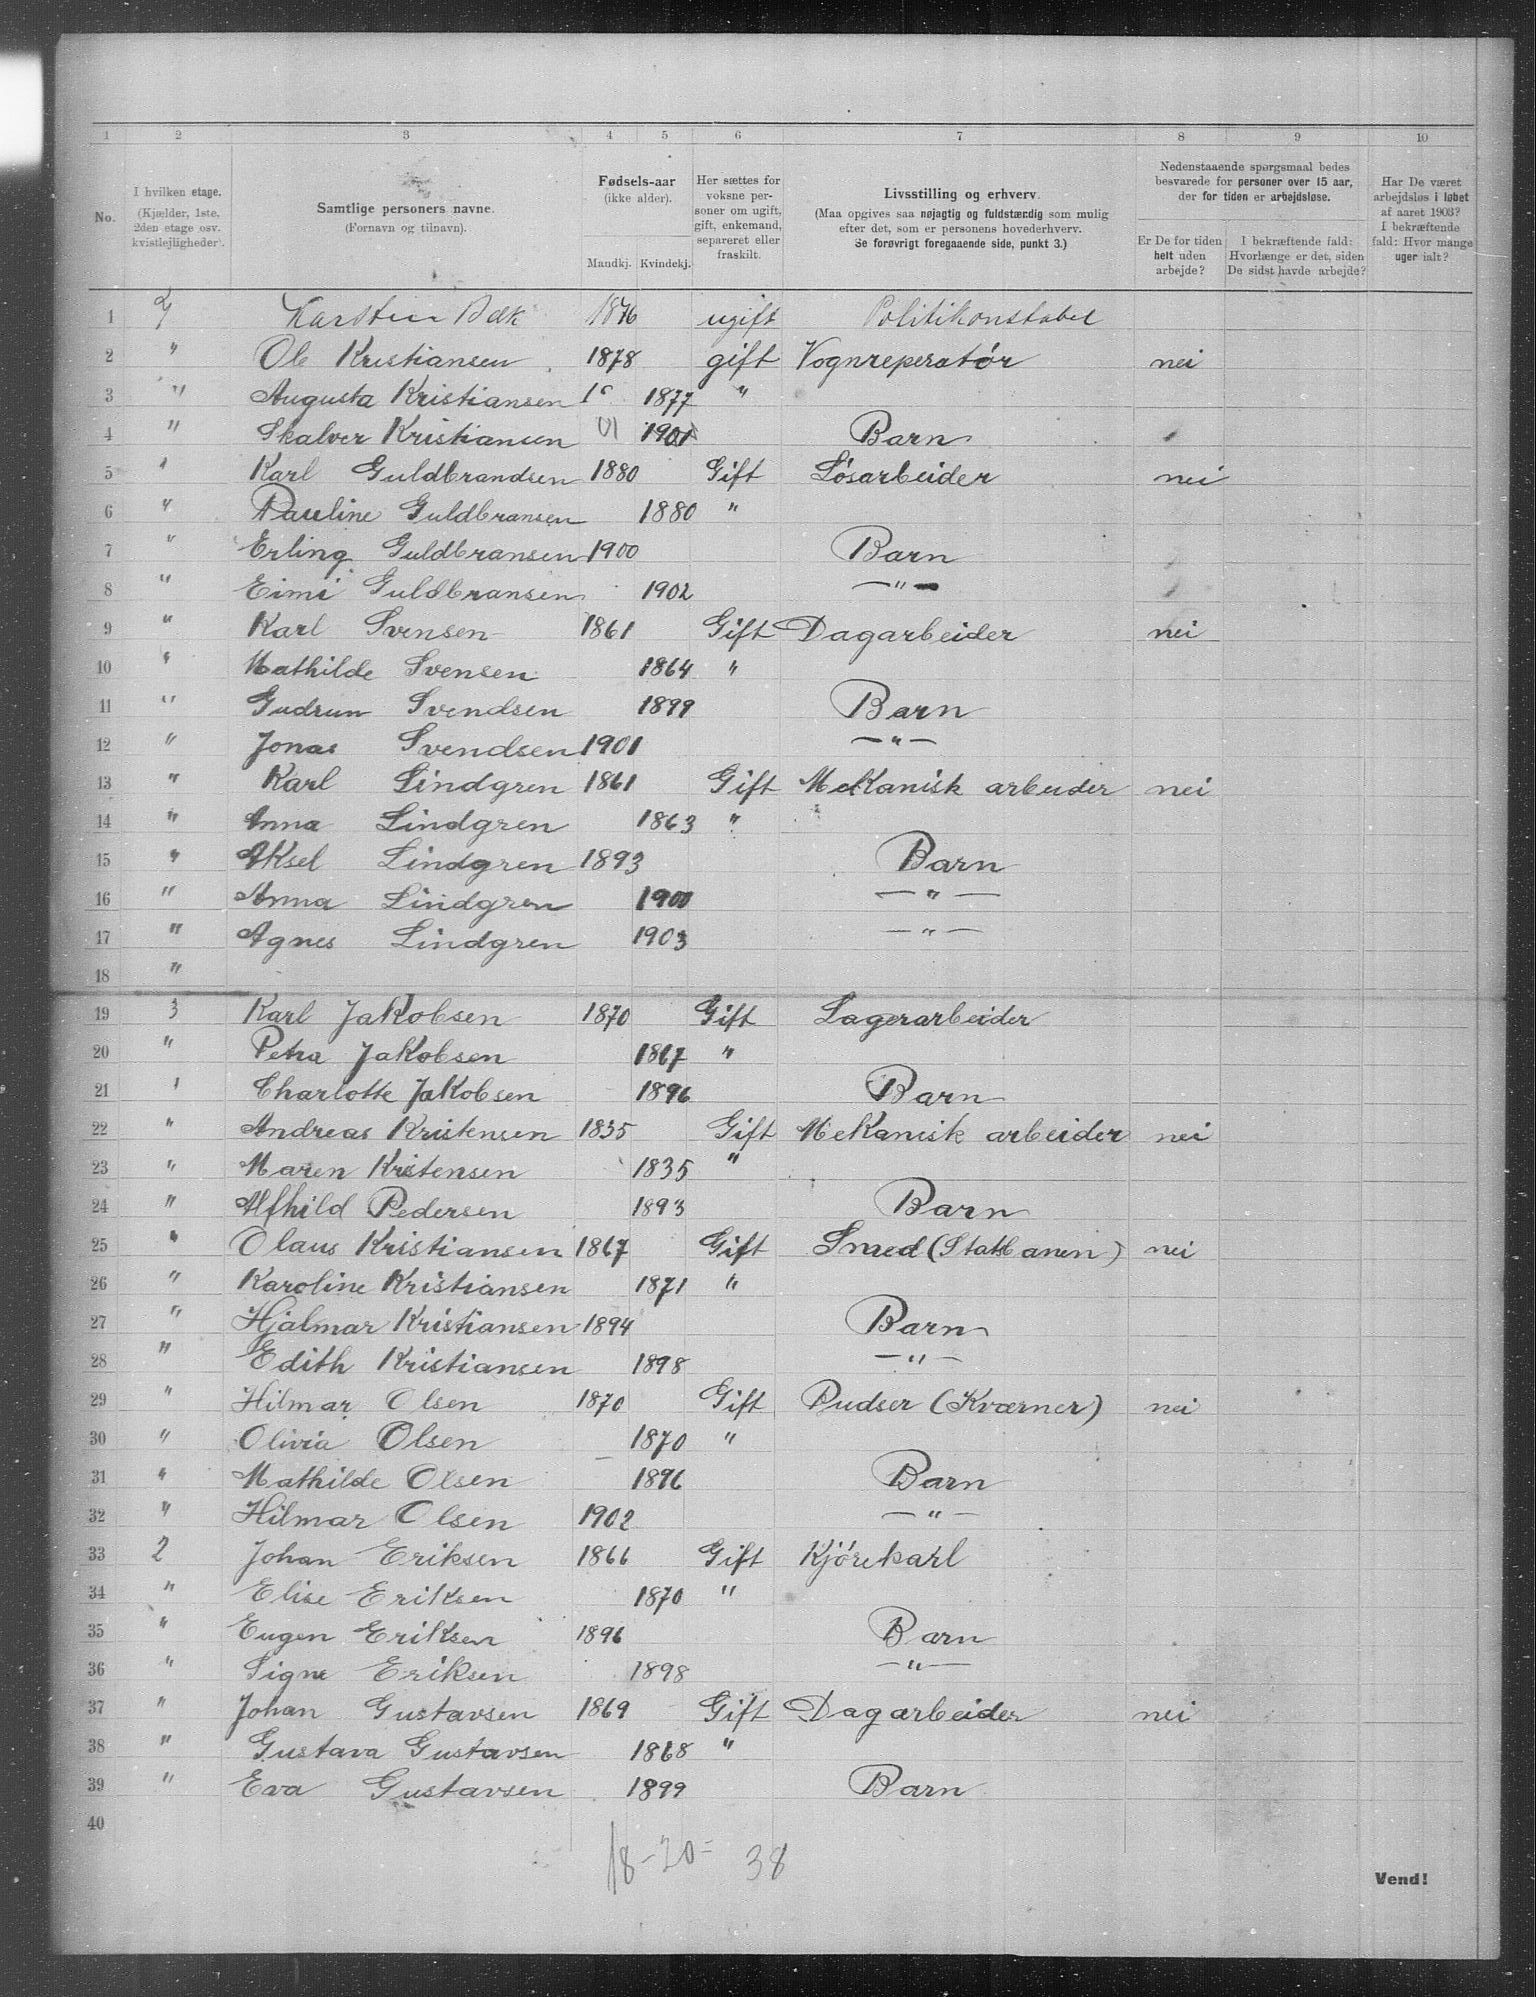 1 2 3 4 5 6 7 8 9 10
No.
I hvilken etage.
(Kjælder, 1ste,
2den etage osv.
kvistlejligheder).
Samtlige personers navne.
(Fornavn og tilnavn).
Fødsels-aar
(ikke alder).
Mandkj. Kvindekj.
Her sættes for
voksne per-
soner om ugift,
gift, enkemand,
separeret eller
fraskilt.
Livsstilling og erhverv.
(Maa opgives saa nøjagtig og fuldstændig som mulig
efter det, som er personens hovederhverv.
Se forøvrigt foregaaende side, punkt 3.)
Nedenstaaende spørgsmaal bedes
besvarede for personer over 15 aar,
der for tiden er arbejdsløse.
Er De for tiden
helt uden
arbejde?
I bekræftende fald:
Hvorlænge er det, siden
De sidst havde arbejde?
Har De været
arbejdsløs i løbet
af aaret 1903?
I bekræftende
fald: Hvor mange
uger ialt?
1 Karsten 1876 ugift Politikonstabel
2 " Ole Kristiansen 1878 gift Vognreperatør nei
3 " Augusta Kristiansen 1877 "
4 " Skalver Kristiansen 01 1901 Barn
5 " Karl Guldbrandsen 1880 Gift Løsarbeider nei
6 " Pauline Guldbransen 1880 "
7 " Erling Guldbransen 1900 Barn
8 " Eimi Guldbransen 1902 —"—
9 " Karl Svensen 1861 Gift Dagarbeider nei
10 " Mathilde Svensen 1864 "
11 " Gudrun Svendsen 1899 Barn
12 " Jonas Svendsen 1901 —"—
13 " Karl Lindgren 1861 Gift Mekanisk arbeider nei
14 " Anna Lindgren 1863 "
15 " Aksel Lindgren 1893 Barn
16 " Anna Lindgren 1900 —"—
17 " Agnes Lindgren 1903 —"—
18 "
19 3 Karl Jakobsen 1870 Gift Lagerarbeider
20 " Petra Jakobsen 1867 "
21 " Charlotte Jakobsen 1896 Barn
22 " Andreas Kristensen 1835 Gift Mekanisk arbeider nei
23 " Maren Kristensen 1835 "
24 " Alfhild Pedersen 1893 Barn
25 " Olaus Kristiansen 1867 Gift Smed (Statsbanen) nei
26 " Karoline Kristiansen 1871 "
27 " Hjalmar Kristiansen 1894 Barn
28 " Edith Kristiansen 1898 —"—
29 " Hilmar Olsen 1870 Gift Pudser (Kværner) nei
30 " Olivia Olsen 1870 "
31 " Mathilde Olsen 1896 Barn
32 " Hilmar Olsen 1902 —"—
33 2 Johan Eriksen 1866 Gift Kjørekarl
34 " Elise Eriksen 1870 "
35 " Eugen Eriksen 1896 Barn
36 " Signe Eriksen 1898 —"—
37 " Johan Gustavsen 1869 Gift Dagarbeider nei
38 " Gustava Gustavsen 1868 "
39 " Eva Gustavsen 1899 Barn
40
18-20- 38
Vend!